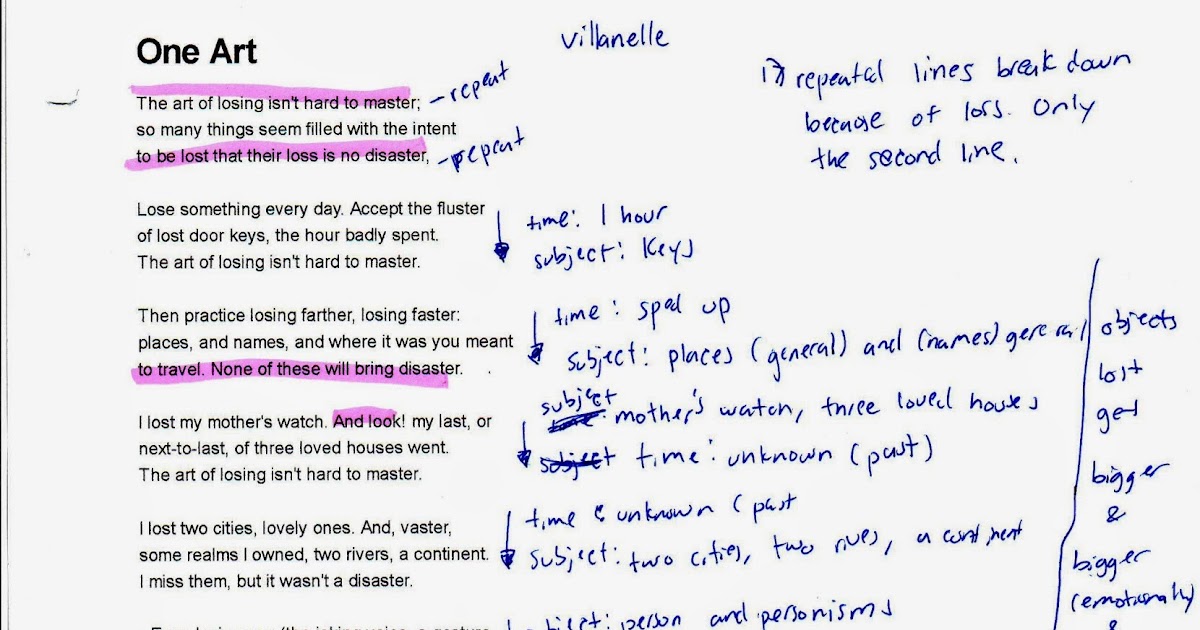 One Art
villanelle
The art of losing isn't hard to master; – repeat
so many things seem filled with the intent
to be lost that their loss is no disaster, – repeat
repeated lines break down
because of loss. Only
the second line.
Lose something every day. Accept the fluster
of lost door keys, the hour badly spent.
The art of losing isn't hard to master.
time: 1 hour
subject: Keys
Then practice losing farther, losing faster:
places, and names, and where it was you meant
to travel. None of these will bring disaster.
time: sped up
subject: places (general) and (names) general
I lost my mother's watch. And look! my last, or
next-to-last, of three loved houses went.
The art of losing isn't hard to master.
subject
mother's watch, three loved houses
subject time: unknown (past)
I lost two cities, lovely ones. And, vaster,
some realms I owned, two rivers, a continent.
I miss them, but it wasn't a disaster.
time: unknown (past
subject: two cities, two rives, a continent
person and personisms
objects
lost
get
bigger
&
bigger
(emotionally)